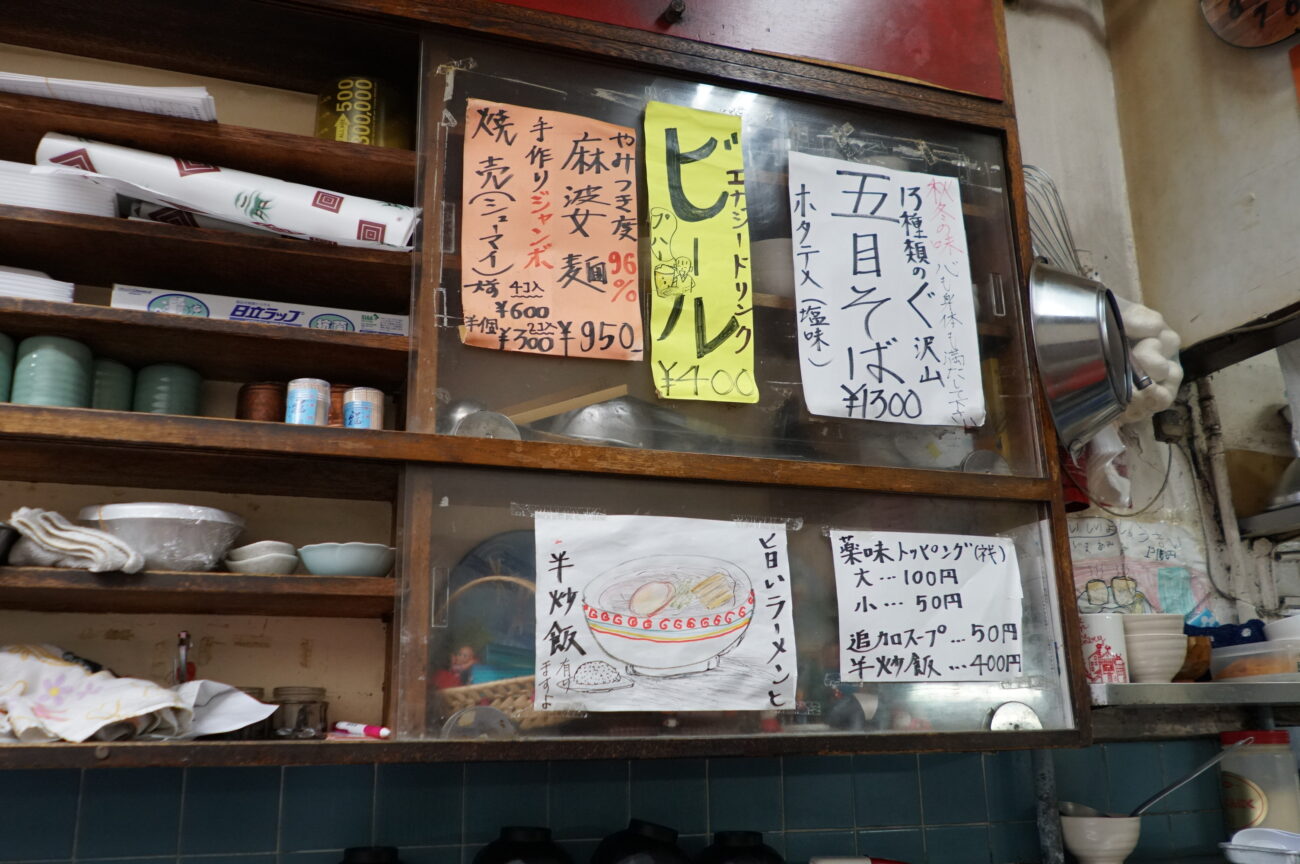 やみつき度
96%
麻婆麺
¥950
手作りジャンボ
焼売(シューマイ)
4コ入
¥600
半個
2コ入
¥300
エナジードリンク
ビール
プハー
¥400
秋冬の味
心も身体も満たして下さい
13種類のぐ沢山
五目そば
¥1300
ホタテ入(塩味)
旨いラーメンと
半炒飯
有りますよ
薬味トッピング(ネギ)
大…100円
小…50円
追加スープ…50円
半炒飯…400円
日立ラップ
抗菌
500